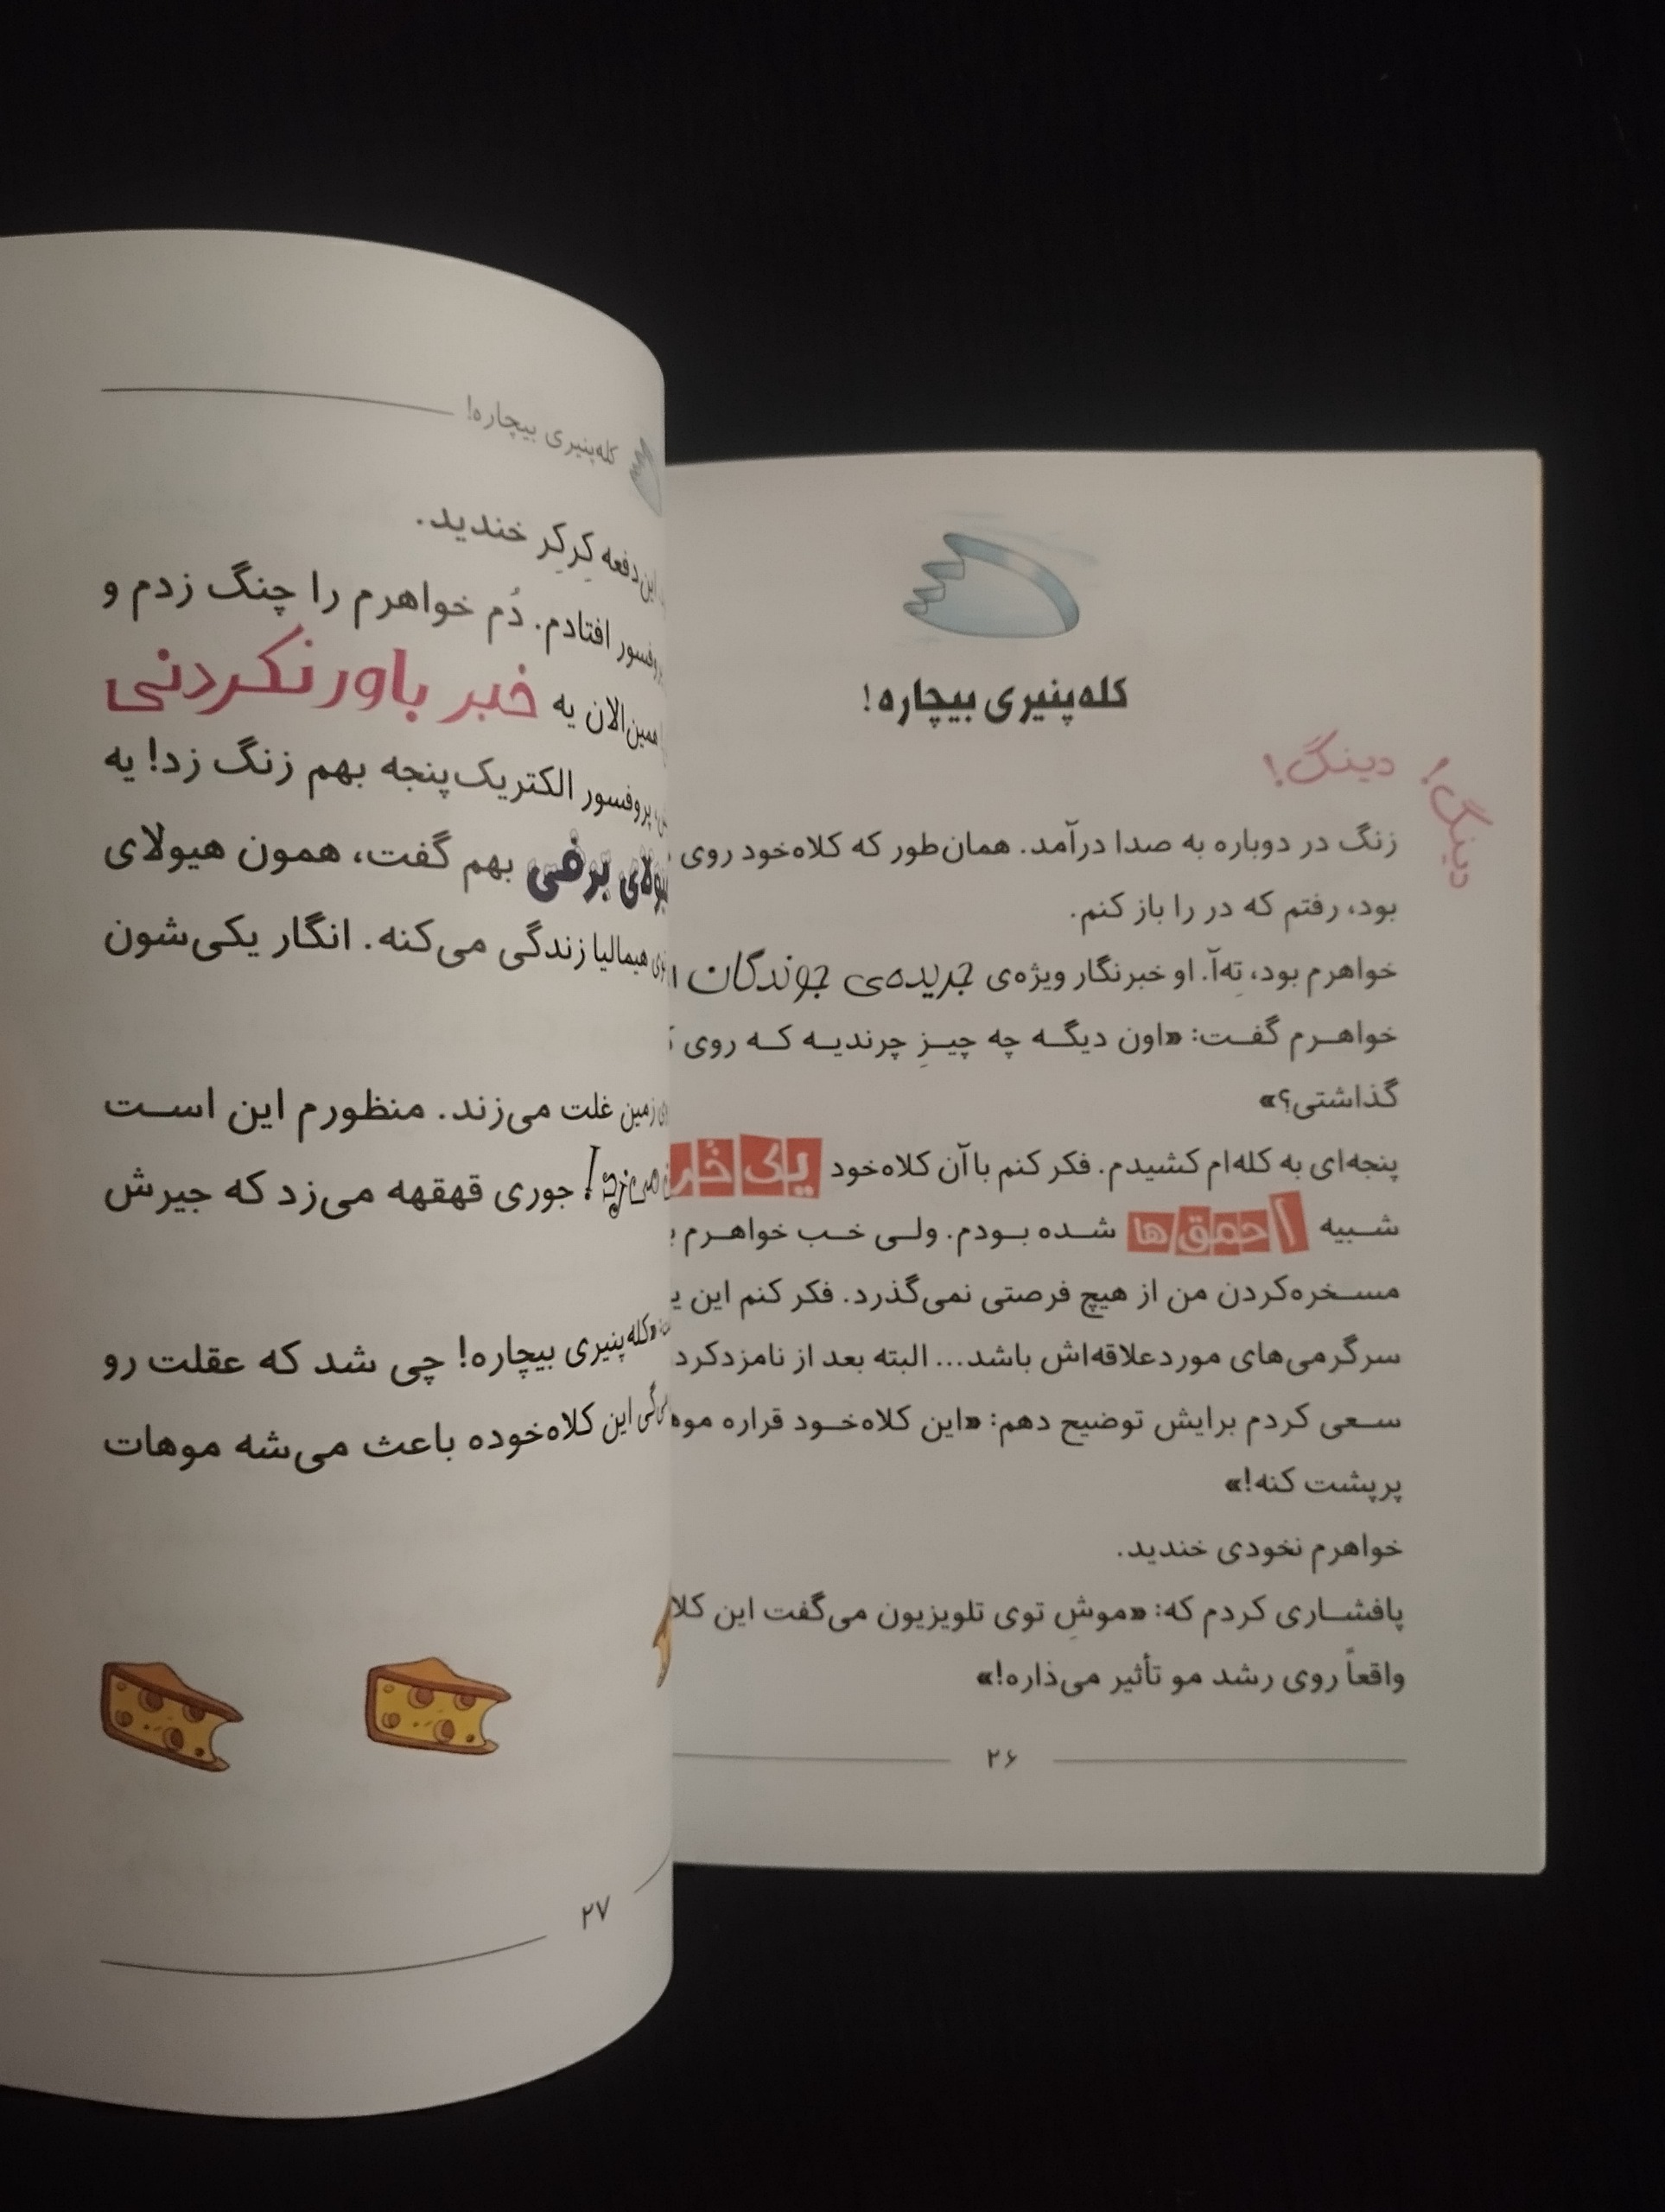 کله‌پنیری بیچاره!
دینگ! دینگ!
زنگ در دوباره به صدا درآمد. همان‌طور که کلاه‌خود روی
بود، رفتم که در را باز کنم.
خواهرم بود، تِه‌آ. او خبرنگار ویژه‌ی جریده‌ی جوندگان
خواهرم گفت: «اون دیگه چه چیزِ چرندیه که روی
گذاشتی؟»
پنجه‌ای به کله‌ام کشیدم. فکر کنم با آن کلاه‌خود یک
شبیه احمق‌ها شده بودم. ولی خب خواهرم
مسخره‌کردن من از هیچ فرصتی نمی‌گذرد. فکر کنم این
سرگرمی‌های موردعلاقه‌اش باشد... البته بعد از
سعی کردم برایش توضیح دهم: «این کلاه‌خود قراره
پرپشت کنه!»
خواهرم نخودی خندید.
پافشاری کردم که: «موشِ توی تلویزیون می‌گفت این
واقعاً روی رشد مو تأثیر می‌ذاره!»
۲۶
کله‌پنیری بیچاره!
این‌دفعه کِرکِر خندید.
افتادم. دُم خواهرم را چنگ زدم و
همین‌الان یه خبر باورنکردنی
پروفسور الکتریک‌پنجه بهم زنگ زد! یه
برفی بهم گفت، همون هیولای
هیمالیا زندگی می‌کنه. انگار یکی‌شون
زمین غلت می‌زند. منظورم این است
می‌زد! جوری قهقهه می‌زد که جیرش
«کله‌پنیری بیچاره! چی شد که عقلت رو
این کلاه‌خوده باعث می‌شه موهات
۲۷